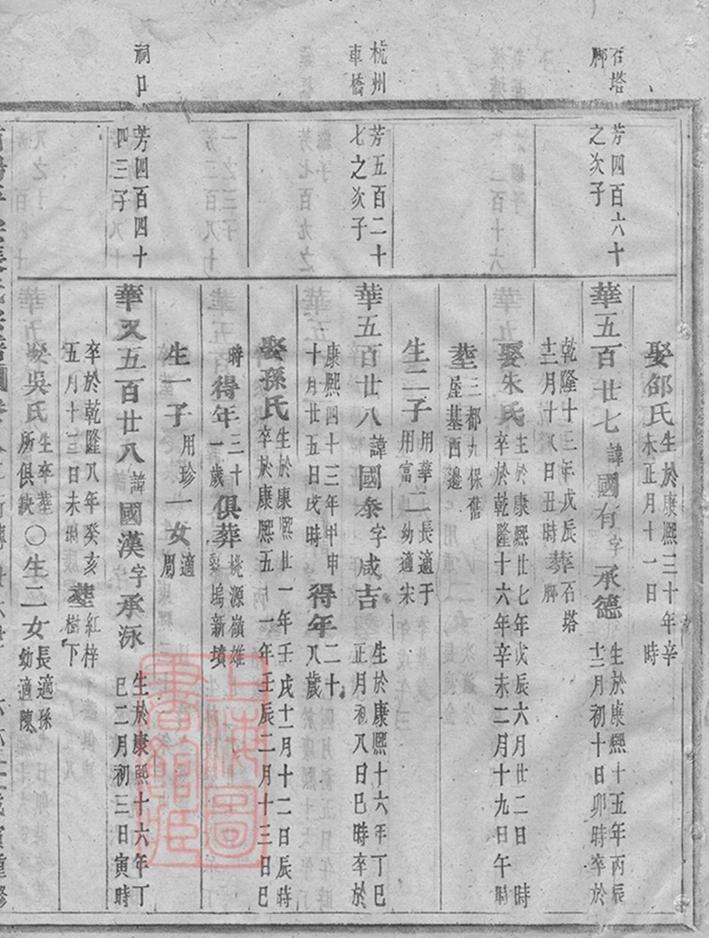 石塔
脚
芳四百六十
之次子
娶邵氏生於康熙三十年辛
未正月十一日時
華五百廿七諱國有字承德生於康熙十五年丙辰
十二月初十日卯時卒於
乾隆十三年戊辰
十二月十八日丑時葬石塔
脚
娶朱氏生於康熙廿七年戊辰六月廿二日時
卒於乾隆十六年辛未二月十九日午時
塟三都九保舊
屋基西邊
生二子用華
用富二女長適于
幼適宋
杭州
車橋
芳五百二十
七之次子
華五百廿八諱國泰字咸吉生於康熙十六年丁巳
正月初八日巳時卒於
康熙四十三年甲申
十月廿五日戌時得年二十
八歲
娶孫氏生於康熙廿一年壬戌十一月十二日辰時
卒於康熙五十一年壬辰二月十三日巳
時得年三十
一歲俱葬桃源嶺雄
塢新墳
生一子用珍一女適
周
祠口
芳四百四十
四三子
華又五百廿八諱國漢字承泳生於康熙十六年丁
巳二月初三日寅時
卒於乾隆八年癸亥
五月十三日未時塟紅梓
樹下
娶吳氏生卒塟
所俱缺〇生二女長適孫
幼適陳